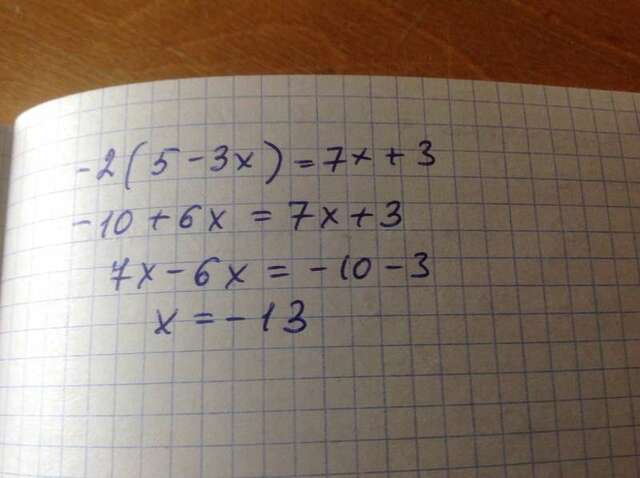 -2(5-3x)=7x+3
-10+6x=7x+3
7x-6x=-10-3
x=-13